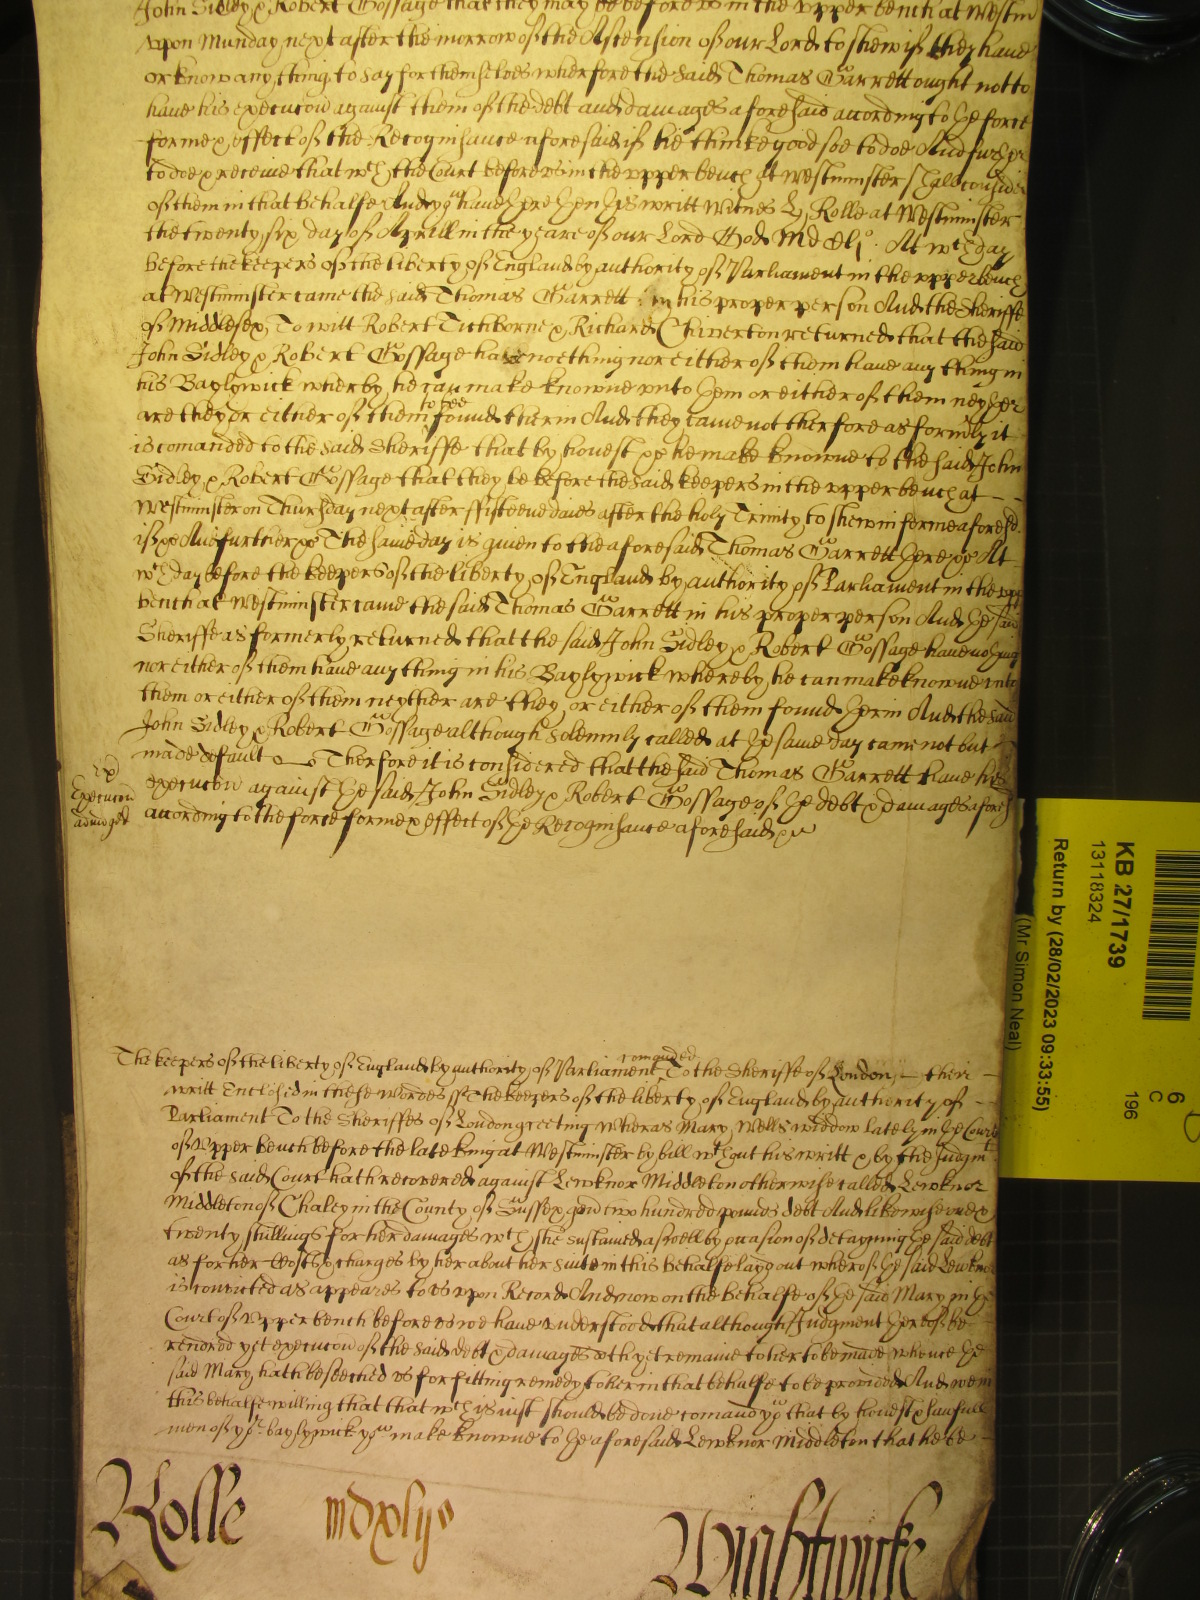 John Sidley & Robert Gossage that they may be before us in the upper bench at Westm
upon Munday next after the morrow of the Ascension of our Lord to shew if they have
or know any thing to say for themselves wherfore the said Thomas Garrett ought not to
have his execucon against them of the debt and damages aforesaid according to the force
forme & effect of the Recognisance aforesaid if hee thinke good soe to doe And further
to doe & receive that wch the Court before us in the upper bench at Westminster shall consider
of them in that behalfe And you have there then this writt Witnes H. Rolle at Westminster
the twenty six day of Aprill in the yeare of our Lord God At wch day
before the keepers of the liberty of England by authority of Parliament in the upper bench
at Westminster came the said Thomas Garrett in his proper person And the Sheriffe
of Middlesex, To witt Robert Tichborne & Richard Chiverton returned that the said
John Sidley & Robert Gossage have noething nor either of them have any thing in
his Baylywick wherby he can make knowne unto them or either of them neyther
are they or either of them to bee found therin And they came not therfore as formerly it
is comanded to the said Sheriffe that by honest &c he make knowne to the said John
Sidley & Robert Gossage that they be before the said keepers in the upper bench at
Westminster on Thursday next after fifteene daies after the holy Trinity to shew in forme aforesd
if &c And further &c The same day is given to the aforesaid Thomas Garrett there &c At
wch day before the keepers of the liberty of England by authority of Parliament in the upp
bench at Westminster came the said Thomas Garrett in his proper person And the said
Sheriffe as formerly returned that the said John Sidley & Robert Gossage have nothing
nor either of them have any thing in his Baylywick whereby he can make knowne unto
them or either of them neyther are they or either of them found therin And the said
John Sidley & Robert Gossage although solemnly called at the same day came not but
made default Therfore it is considered that the said Thomas Garrett have his
execucon against the said John Sidley & Robert Gossage of the debt & damages aforesd
according to the force forme & effect of the Recognisance aforesaid &c
Execucon
adiudged
The keepers of the liberty of England by authority of Parliament comanded To the Sheriffe of London their
writt Enclosed in these wordes ss The keepers of the liberty of England by authority of
Parliament To the Sheriffes of London greeting Wheras Mary Wells widdow lately in the Court
of Upper bench before the late king at Westminster by bill wthout his writt & by the Judgmt
of the said Court hath recovered against Lewknor Middleton otherwise called Lewknor
Middleton of Chaley in the County of Sussex gent two hundred pounds debt And likewise
twenty shillings for her damages wch she sustained aswell by occasion of detayning the said debt
as for her Costs & charges by her about her suite in this behalfe layd out wherof the said Lewknor
is convicted as appeares to us upon Record And now on the behalfe of the said Mary in the
Court of Upper bench before us we have understood that although Judgment therof be
rendred yet execucon of the said debt & damages doth yet remaine to her to be made whence the
said Mary hath beseeched us for fitting remedy to her in that behalfe to be provided And we in
this behalfe willing that that wch is iust should be done comand you that by honest & lawfull
men of yor baylywick you make knowne to the aforesaid Lewknor Middleton that he be
Rolle
mdxlijo
Wightwicke
KB 27/1739
13118324
Return by (28/02/2023 09:33:55)
(Mr Simon Neal)
6
C
196